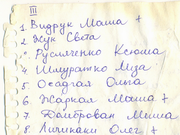 III
1. Видрук Маша +
2 Жук Света
3 Русляченко Ксюша
4 Шмуратко Лиза
5 Осадчая Ольга
6 Жаркал Маша +
7 Домброван Миша
8. Личикаки Олег +